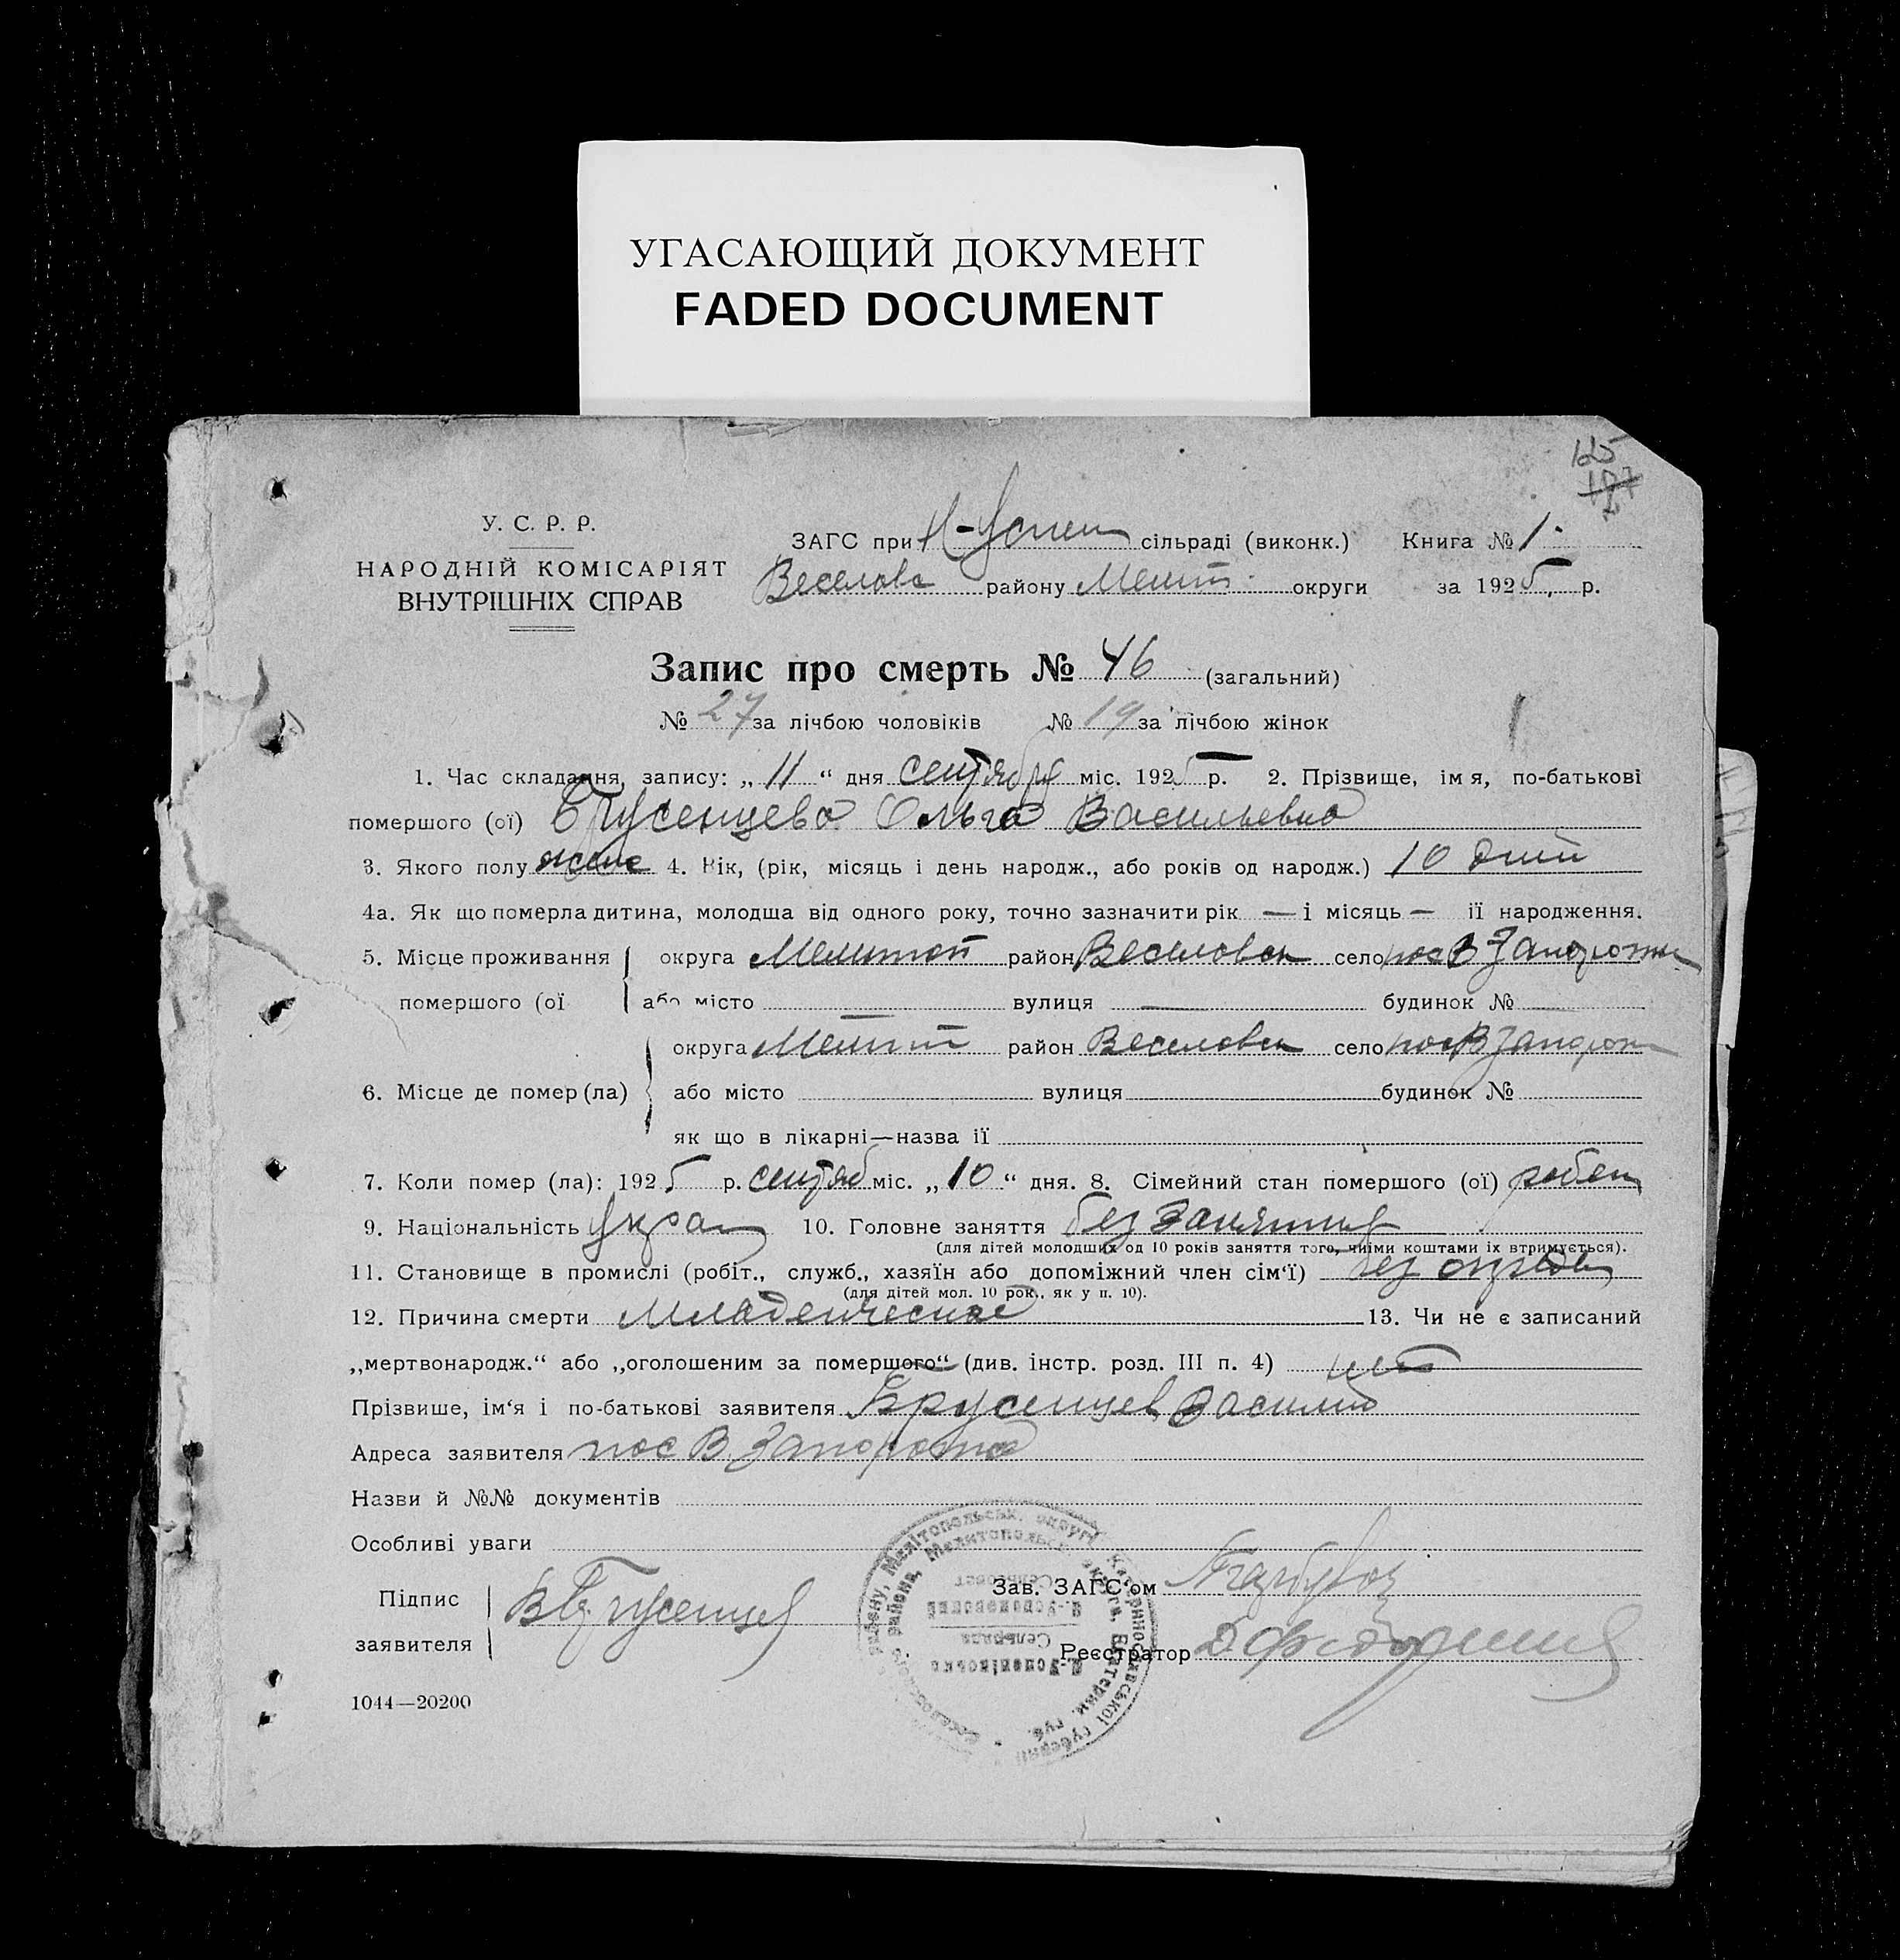 УГАСАЮЩИЙ ДОКУМЕНТ
FADED DOCUMENT
125
187
У. С. Р. Р.
НАРОДНІЙ КОМІСАРІЯТ
ВНУТРІШНІХ СПРАВ
ЗАГС при Н-Успен сільраді (виконк.) Книга № 1.
Веселов району Мелит. округи за 1925 р.
Запис про смерть № 46 (загальний)
№ 27 за лічбою чоловіків № 19 за лічбою жінок
1. Час складання запису: „11“ дня сентября міс. 1925 р. 2. Прізвище, ім я, по-батькові
помершого (ої) Брусенцева Ольга Васильевна
3. Якого полу жене 4. Вік, (рік, місяць і день народж., або років од народж.) 10 дний
4а. Як що померла дитина, молодша від одного року, точно зазначити рік — і місяць — її народження.
5. Місце проживання округа Мелитоп район Веселовск село пос В Запорожж
помершого (ої або місто вулиця — будинок №
округа Мелит район Веселовск село пос В Запорож
6. Місце де помер (ла) або місто вулиця будинок №
як що в лікарні—назва її
7. Коли помер (ла): 1925 р. сентяб міс. „10“ дня. 8. Сімейний стан помершого (ої) ребен
9. Національність украин 10. Головне заняття без занятия
(для дітей молодших од 10 років заняття того, чиїми коштами їх втримується).
11. Становище в промислі (робіт., служб., хазяїн або допоміжний член сім‘ї) без
(для дітей мол. 10 рок., як у п. 10).
12. Причина смерти Младенческая 13. Чи не є записаний
„мертвонародж.“ або „оголошеним за помершого“ (див. інстр. розд. III п. 4) нет
Прізвише, ім‘я і по-батькові заявителя Брусенцев Василий
Адреса заявителя пос В. Запорожа
Назви й №№ документів
Особливі уваги
Підпис
заявителя В Брусенцев
Зав. ЗАГС‘ом
Реєстратор
1044—20200